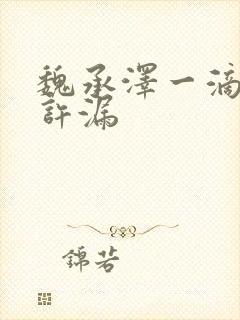 魏承澤一滴
許漏
錦若